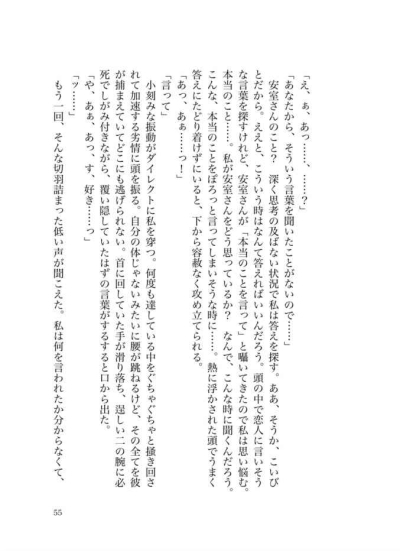 「え、ぁ、あっ……、……？」
「あなたから、そういう言葉を聞いたことがないので……」
安室さんのこと？　深く思考の及ばない状況で私は答えを探す。ああ、そうか、こいび
とだから。ええと、こういう時はなんて答えればいいんだろう。頭の中で恋人に言いそう
な言葉を探すけれど、安室さんが「本当のことを言って」と囁いてきたので私は思い悩む。
本当のこと……。私が安室さんをどう思っているか？　なんで、こんな時に聞くんだろう。
こんな、本当のことをぽろっと言ってしまいそうな時に……。熱に浮かされた頭でうまく
答えにたどり着けずにいると、下から容赦なく攻め立てられる。
「あっ、あぁ……っ！」
「言って」
小刻みな振動がダイレクトに私を穿つ。何度も達している中をぐちゃぐちゃと掻き回さ
れて加速する劣情に頭を振る。自分の体じゃないみたいに腰が跳ねるけど、その全てを彼
が捕まえていてどこにも逃げられない。首に回していた手が滑り落ち、逞しい二の腕に必
死でしがみ付きながら、覆い隠していたはずの言葉がするすると口から出た。
「や、あぁ、あっ、す、好き……っ」
「ッ……」
もう一回、そんな切羽詰まった低い声が聞こえた。私は何を言われたか分からなくて、
55